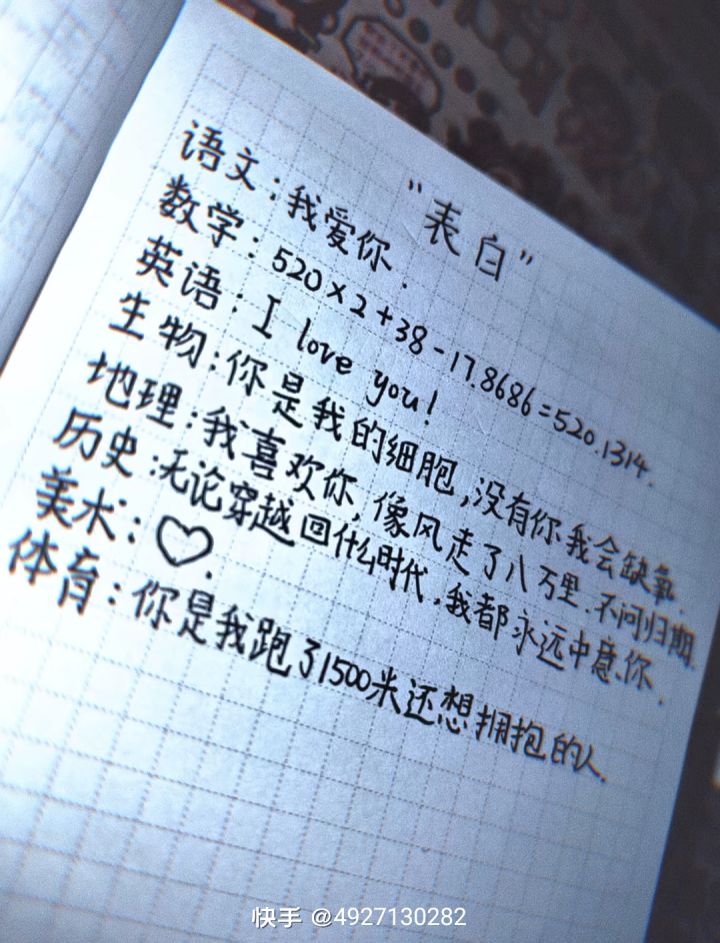 “表白”
语文：我爱你.
数学：520×2+38-17.8686=520.1314.
英语：I love you!
生物：你是我的细胞,没有你我会缺氧.
地理：我喜欢你,像风走了八万里.不问归期.
历史：无论穿越回什么时代,我都永远中意你.
美术：♡.
体育：你是我跑了1500米还想拥抱的人.
快手 @4927130282